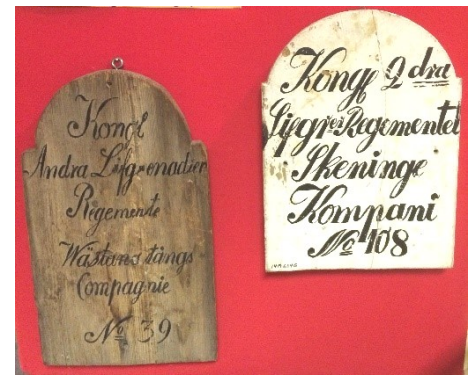 Kongl
Andra Lifgrenadier
Regemente
Wästanstångs
Compagnie
No 39
Kongl 2dra
Lifgr:Regementet
Skeninge
Kompani
No 108